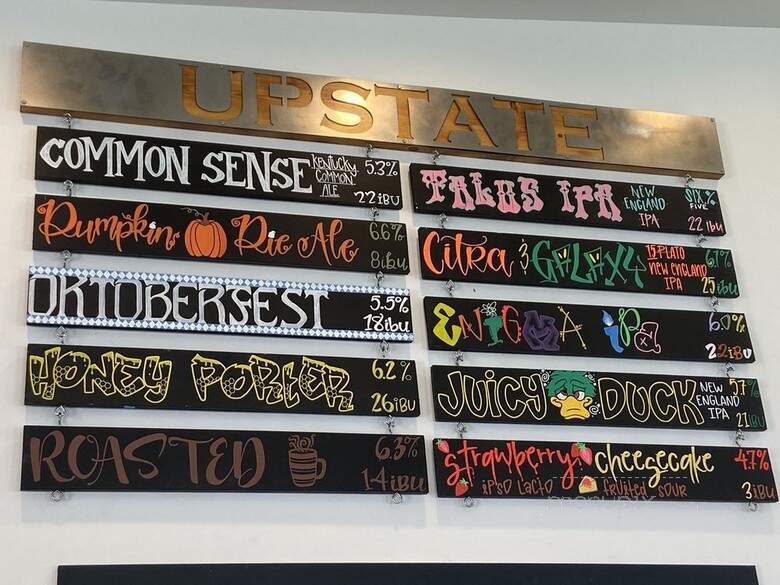 UPSTATE
COMMON SENSE KENTUCKY COMMON ALE 5.3%
22 iBU
Pumpkin Pie Ale 6.6%
8ibu
OKTOBERFEST 5.5%
18ibu
HONEY PORTER 6.2%
26iBU
ROASTED 6.3%
14iBU
TALUS IPA NEW ENGLAND IPA SIX% FIVE
22 ibu
Citra & GALAXY 15 PLATO NEW ENGLAND IPA 6.7%
25ibu
ENIGMA iPa 6.0%
22iBU
JUICY DUCK NEW ENGLAND IPA 5.7%
21iBU
strawberry cheesecake 4.7%
iPSO LACTO fruited sour 3iBU